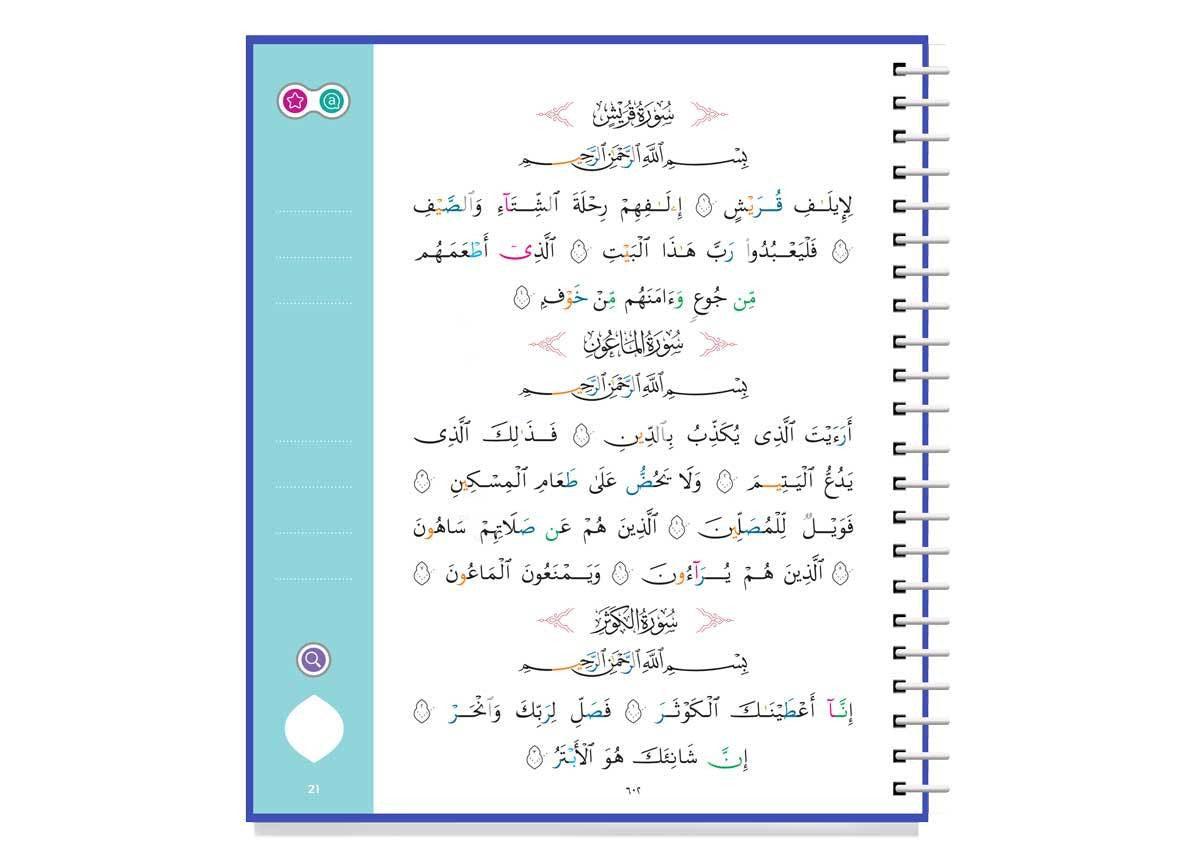 سُورَةُ قُرَيْشٍ
بِسْمِ ٱللَّهِ ٱلرَّحْمَٰنِ ٱلرَّحِيمِ
لِإِيلَٰفِ قُرَيْشٍ ۝ إِۦلَٰفِهِمْ رِحْلَةَ ٱلشِّتَآءِ وَٱلصَّيْفِ
۝ فَلْيَعْبُدُوا۟ رَبَّ هَٰذَا ٱلْبَيْتِ ۝ ٱلَّذِىٓ أَطْعَمَهُم
مِّن جُوعٍ وَءَامَنَهُم مِّنْ خَوْفٍۭ ۝
سُورَةُ المَاعُونِ
بِسْمِ ٱللَّهِ ٱلرَّحْمَٰنِ ٱلرَّحِيمِ
أَرَءَيْتَ ٱلَّذِى يُكَذِّبُ بِٱلدِّينِ ۝ فَذَٰلِكَ ٱلَّذِى
يَدُعُّ ٱلْيَتِيمَ ۝ وَلَا يَحُضُّ عَلَىٰ طَعَامِ ٱلْمِسْكِينِ ۝
فَوَيْلٌ لِّلْمُصَلِّينَ ۝ ٱلَّذِينَ هُمْ عَن صَلَاتِهِمْ سَاهُونَ
۝ ٱلَّذِينَ هُمْ يُرَآءُونَ ۝ وَيَمْنَعُونَ ٱلْمَاعُونَ ۝
سُورَةُ الكَوْثَرِ
بِسْمِ ٱللَّهِ ٱلرَّحْمَٰنِ ٱلرَّحِيمِ
إِنَّآ أَعْطَيْنَٰكَ ٱلْكَوْثَرَ ۝ فَصَلِّ لِرَبِّكَ وَٱنْحَرْ ۝
إِنَّ شَانِئَكَ هُوَ ٱلْأَبْتَرُ ۝
٦٠٢
a
21